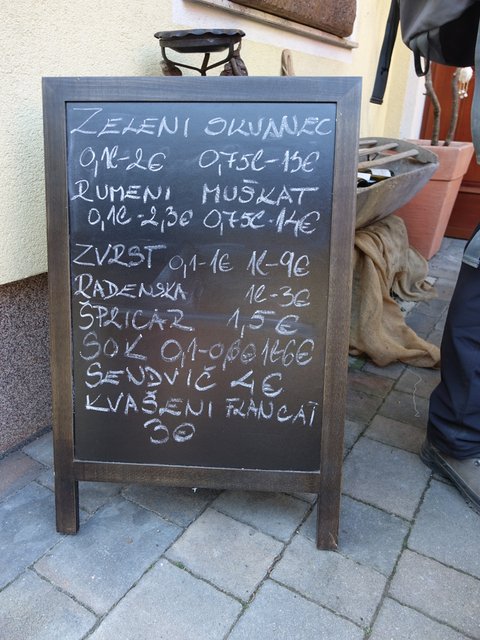 ZELENI SILVANEC
0,1L-2€ 0,75L-13€
RUMENI MUŠKAT
0,1L-2,3€ 0,75L-14€
ZVRST 0,1-1€ 1L-9€
RADENSKA 1L-3€
ŠPRICAR 1,5€
SOK 0,1-0,60€ 1L-6€
SENDVIČ 4€
KVAŠENI FRANCAT
3€